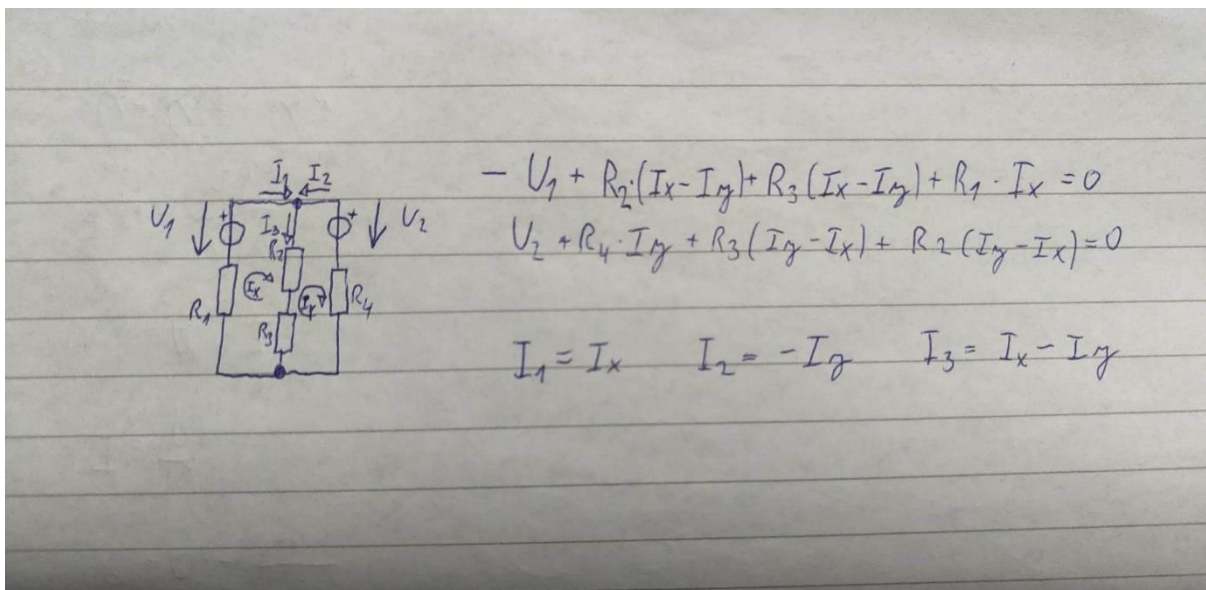 I₁ I₂
U₁ + I₃ + U₂
R₂
R₁ Iₓ Iᵧ R₄
R₃
- U₁ + R₂·(Iₓ-Iᵧ) + R₃(Iₓ-Iᵧ) + R₁ · Iₓ = 0
U₂ + R₄ · Iᵧ + R₃(Iᵧ-Iₓ) + R2(Iᵧ-Iₓ) = 0
I₁ = Iₓ I₂ = -Iᵧ I₃ = Iₓ - Iᵧ